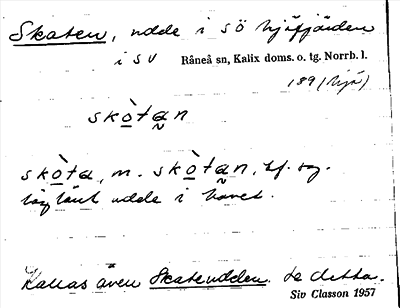 Skaten, udde i sö Hjäfjärden
i SV Råneå sn, Kalix doms. o. tg. Norrb. l.
189
skò̱tan
skò̱ta, m. skò̱tan, bf. sg.
låglänt udde i havet.
Kallas även Skatudden. Se detta.
Siv Classon 1957